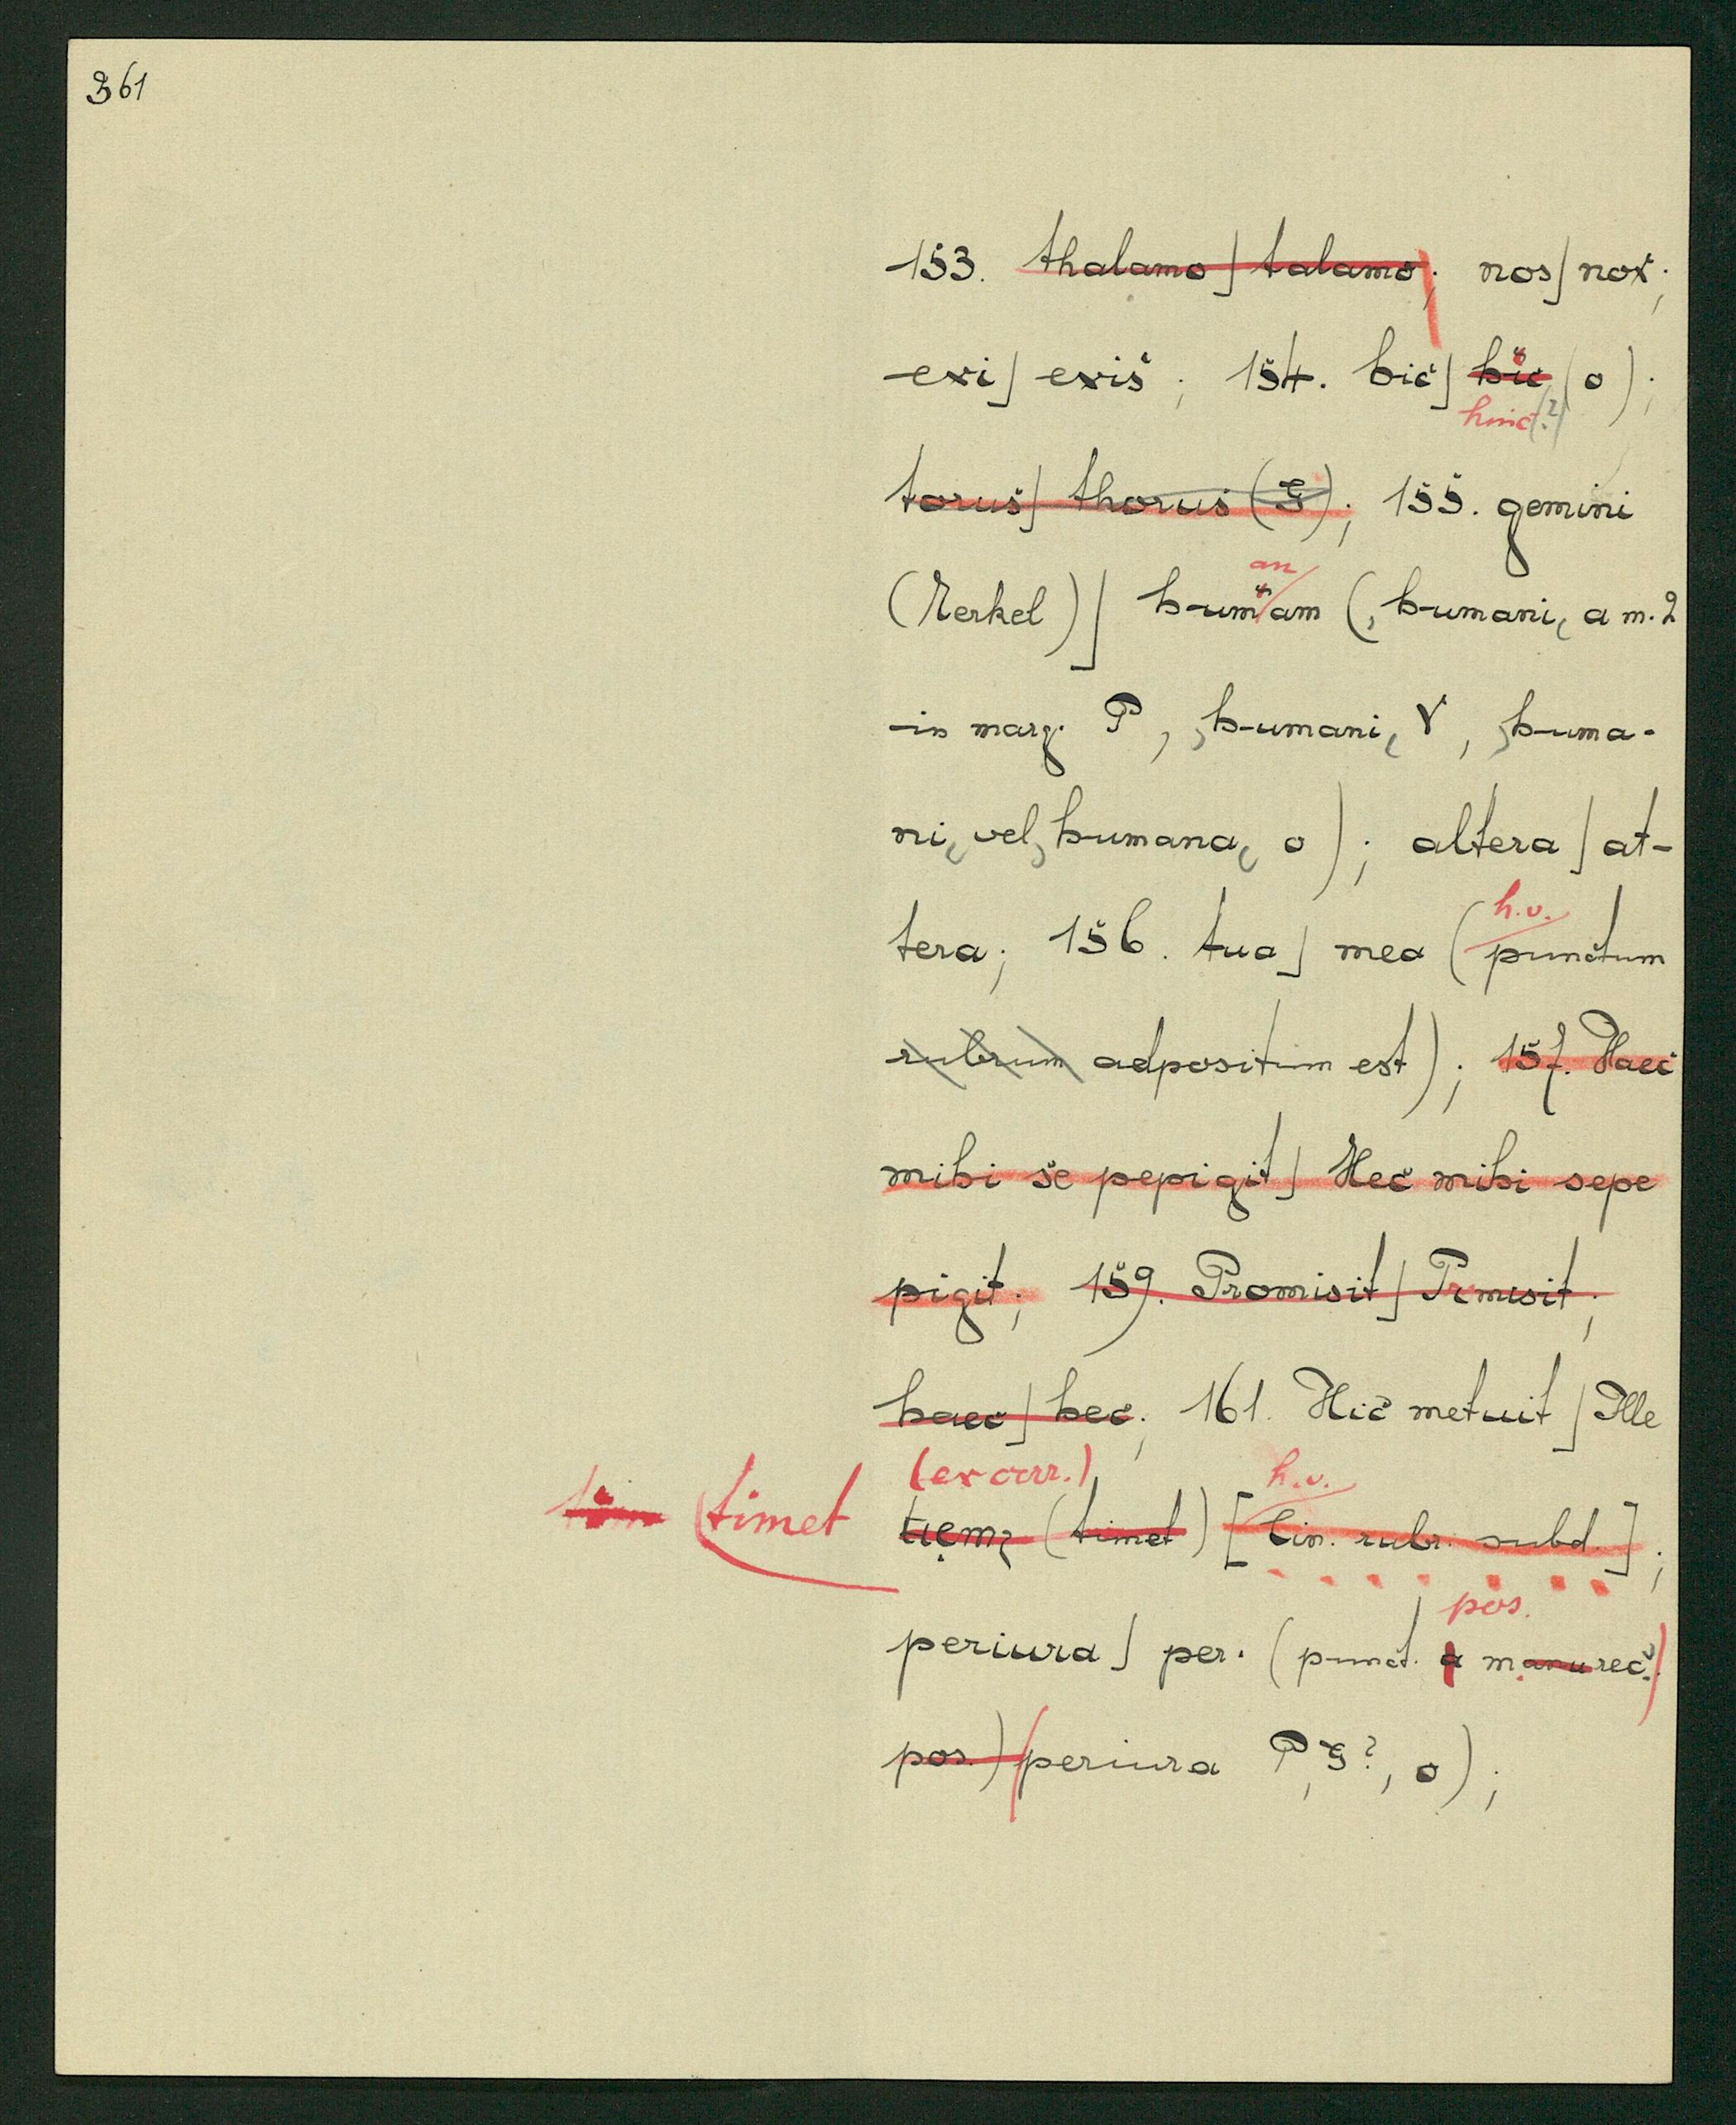 361
153. thalamo] talamo; nos] nox;
exi] exis; 154. hic] hic (o);
hinc (?)
torus] thorus (G); 155. gemini
an
(Merkel)] humam (‚humani‘ a m. 2
in marg. P, ‚humani‘ V, ‚huma-
ni‘ vel ‚humana‘ o); altera] at-
h.v.
tera; 156. tua] mea (punctum
rubrum adpositum est); 157. Haec
mihi se pepigit] Hec mihi sepe
pigit; 159. Promisit] Prmisit;
haec] hec; 161. Hic metuit] Ille
(ex corr.) h.v.
tim timet (timet) [lin. rubr. subd.];
pos.
periura] per. (punct. a manu rec.)
pos.) (periura P, G?, o);